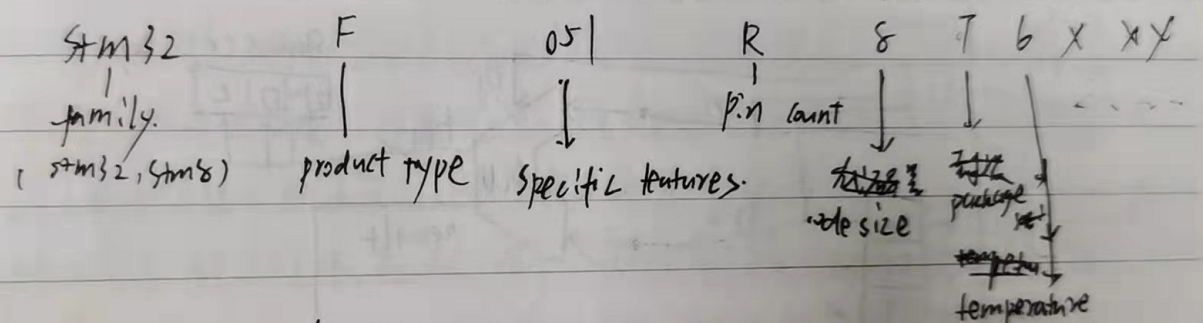 Stm32 F 051 R 8 T 6 x xy
family. pin count . . . . .
( stm32, stm8) product type specific features.
code size package
temperature